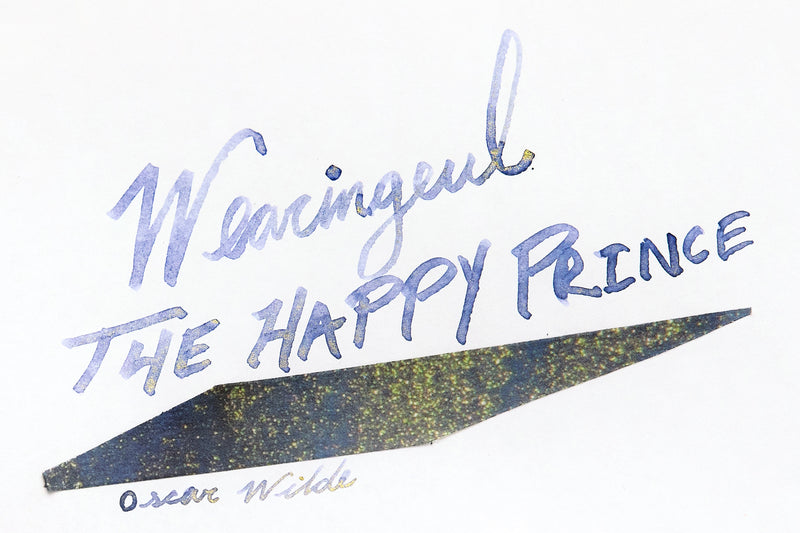 Wearingeul
THE HAPPY PRINCE
Oscar Wilde